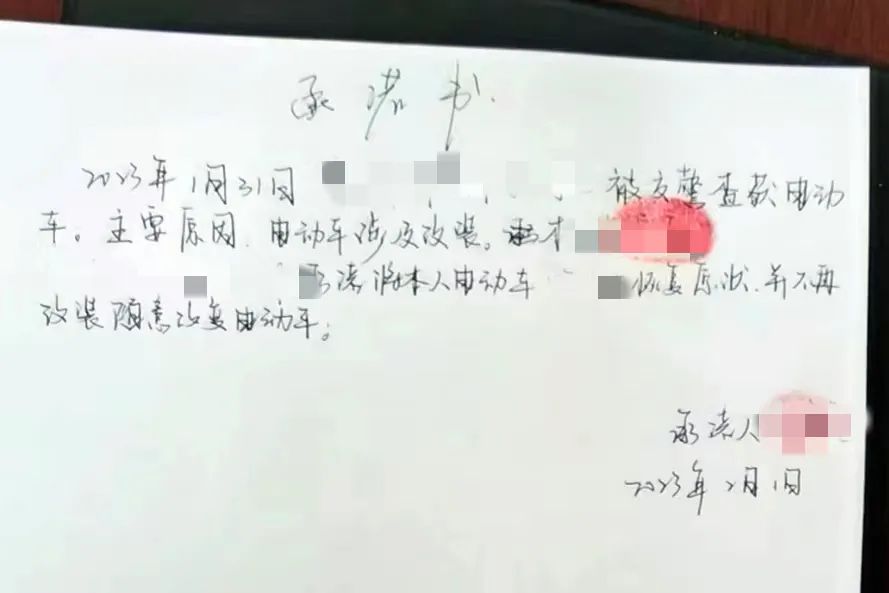 承诺书
2023年1月31日 被交警查获电动
车。主要原因,电动车涉及改装。本
承诺将本人电动车 恢复原状.并不再
改装随意改变电动车。
承诺人
2023年2月1日